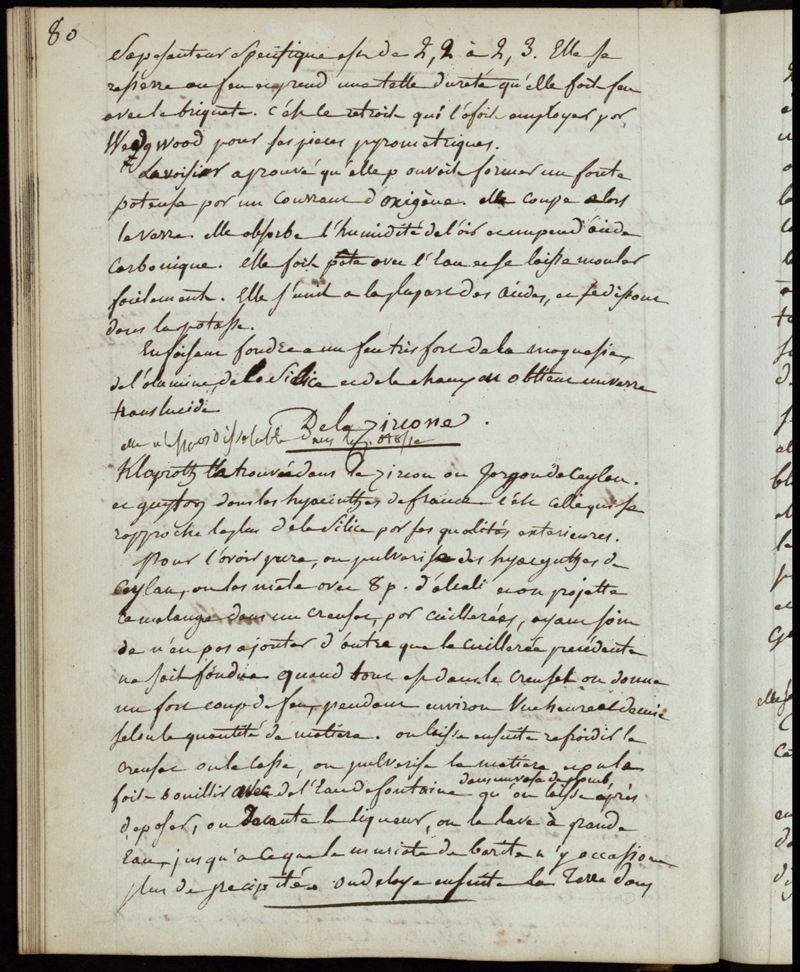 80
Sa pesanteur Spécifique est de 2, 2 à 2, 3. Elle se
resserre au feu et prend une telle dureté qu'elle fait feu
avec le briquet. C'est le retrait qui l'a fait employer par
Wedgwood pour ses pieces pyrometriques.
Lavoisier a prouvé qu'elle pouvoit former un fonte
pateuse par un courrant d'oxigène. elle coupe alors
le verre. elle absorbe l'humidité de l'air et un peu d'acide
carbonique. elle fait pâte avec l'Eau et se laisse mouler
facilement. Elle s'unit a la plupart des acides, et se dissout
dans la potasse.
En faisant fondre a un feu très fort de la magnesie,
de l'alumine, de la Silice et de la chaux on obtient un verre
translucide
De la zircone.
elle n'est pas dissoluble dans la potasse
Klaproth l'a trouvée dans le zircon ou Jargon de Ceylan.
et guyton dans les hyacinthes de france. c'est celle qui se
rapproche le plus de la Silice par ses qualités exterieures.
Pour l'avoir pure, on pulverise des hyacynthes de
Ceylan, on les mêle avec 8 p. d'alcali et on projette
ce melange dans un creuset, par cuillerées, ayant soin
de n'en pas ajouter d'autre que la cuillerée précédente
ne soit fondue quand tout est dans le creuset on donne
un fort coup de feu, pendant environ Une heure et demie
selon la quantité de matiere. on laisse ensuite refroidir le
creuset on le casse, on pulverise la matiere, et on la
fait bouillir avec de l'Eau de fontaine dans un vase de plomb, qu'on laisse après
déposer, on Decante la liqueur, on la lave à grande
Eau, jusqu'a ce que le muriate de barite n'y occasionne
plus de précipité. on delaye ensuite la Terre dans